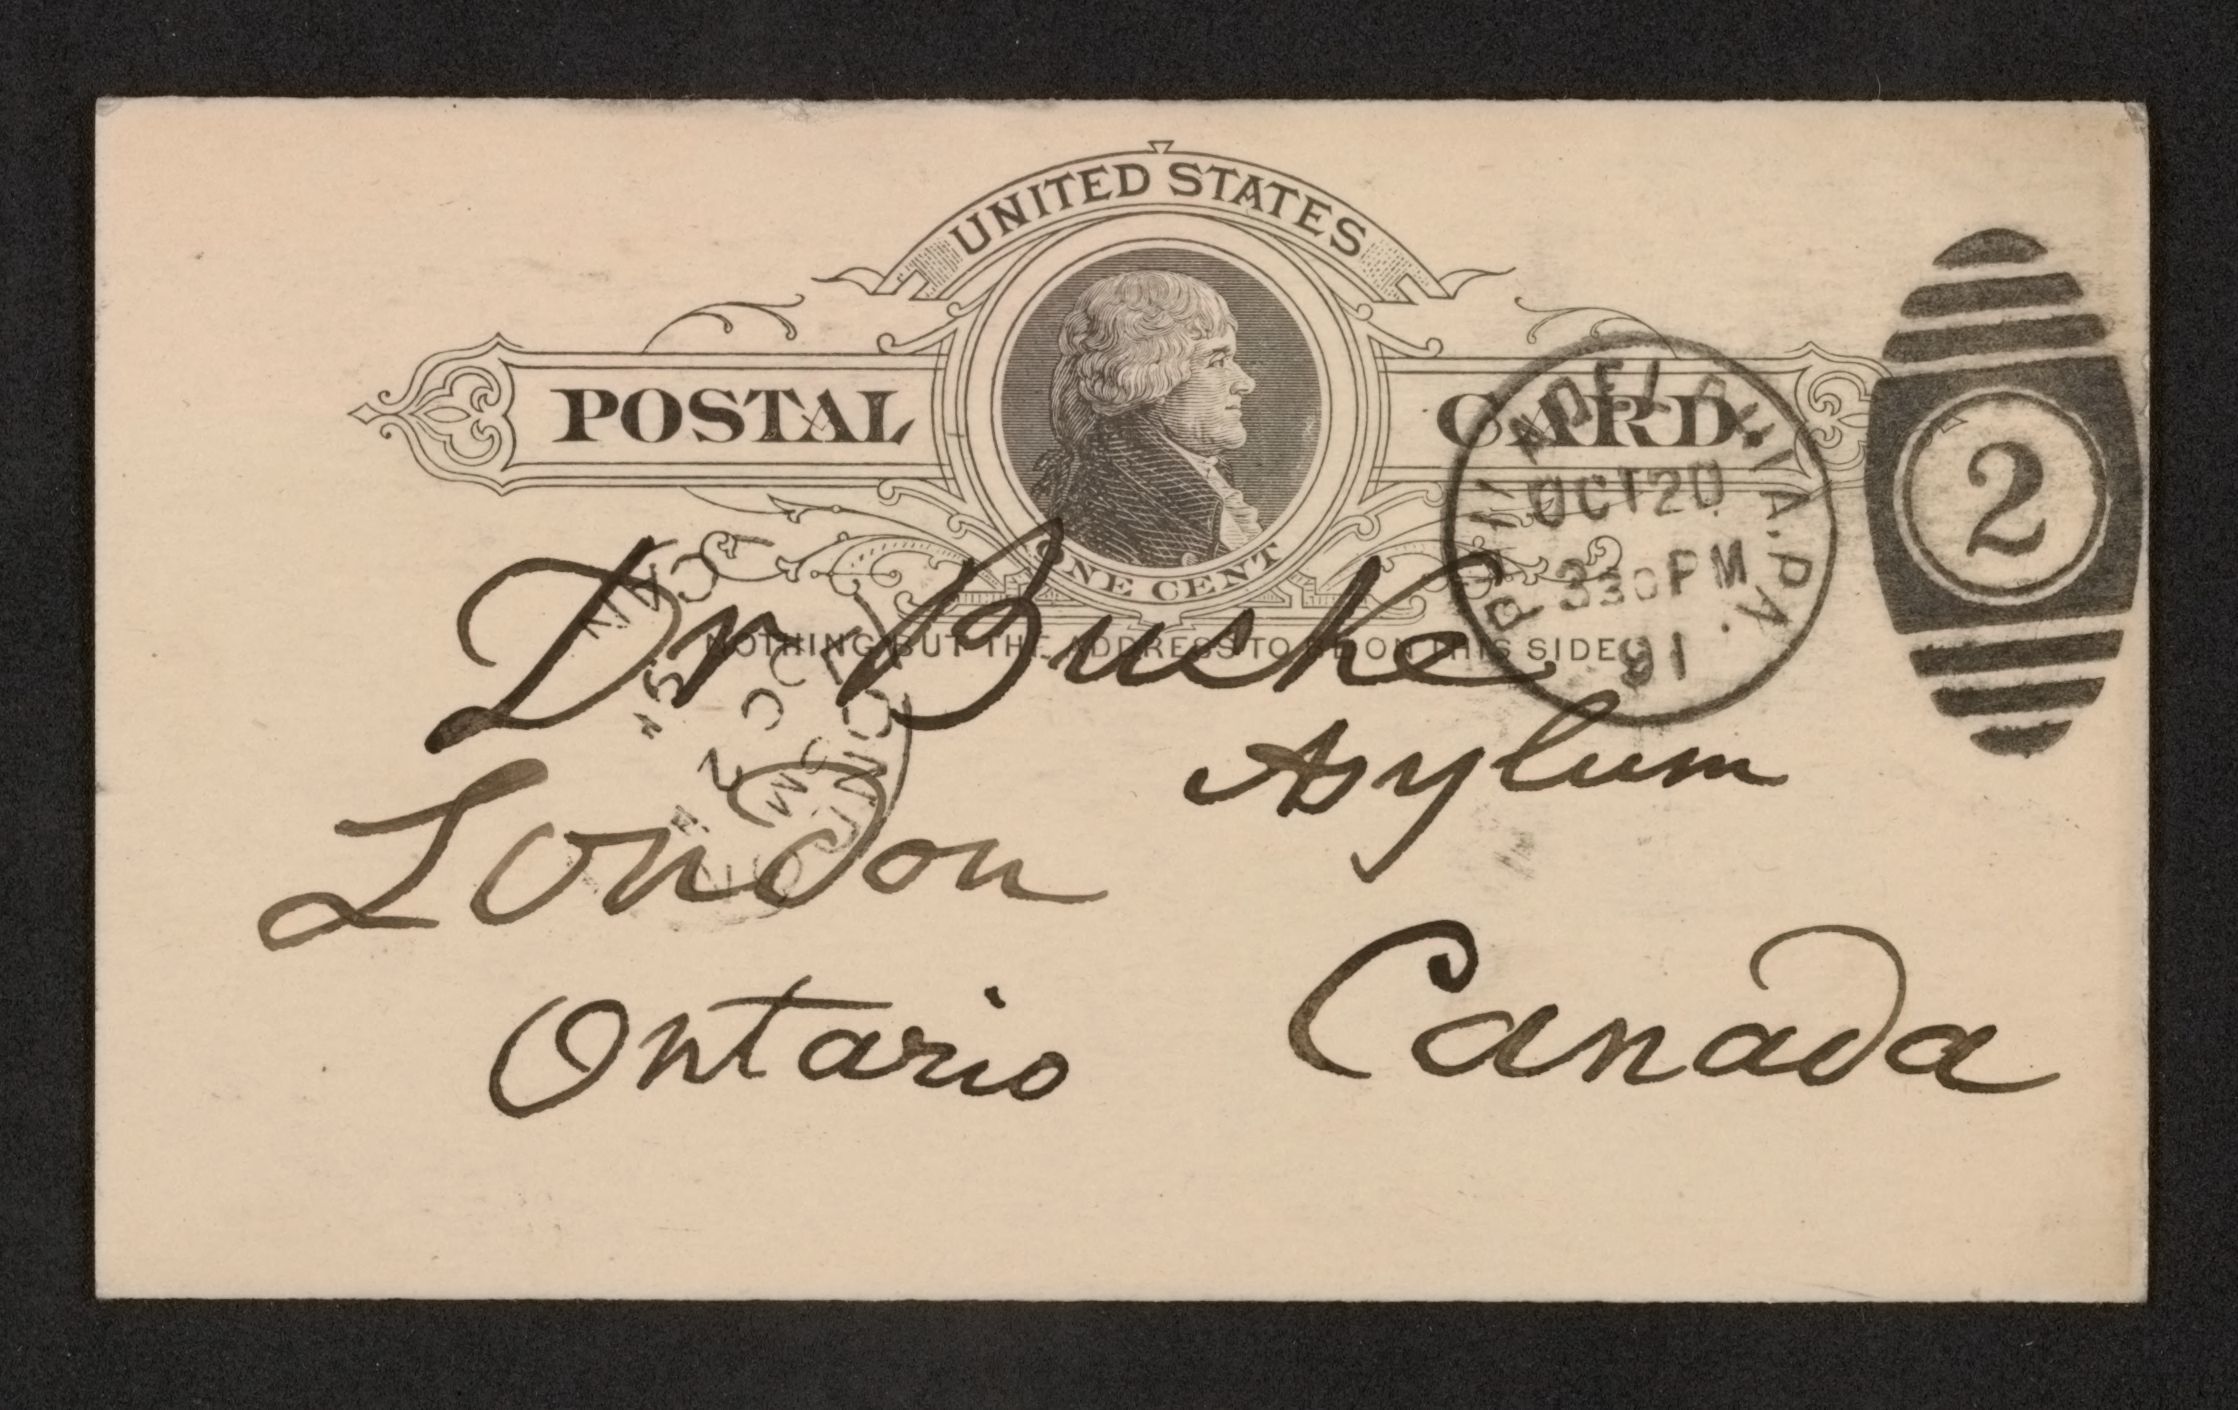 UNITED STATES
POSTAL CARD.
ONE CENT
NOTHING BUT THE ADDRESS TO BE ON THIS SIDE
PHILADELPHIA. PA.
OCT 20
330 PM
91
2
Dr Bucke
Asylum
London
Ontario Canada
LONDON
CAN
OC